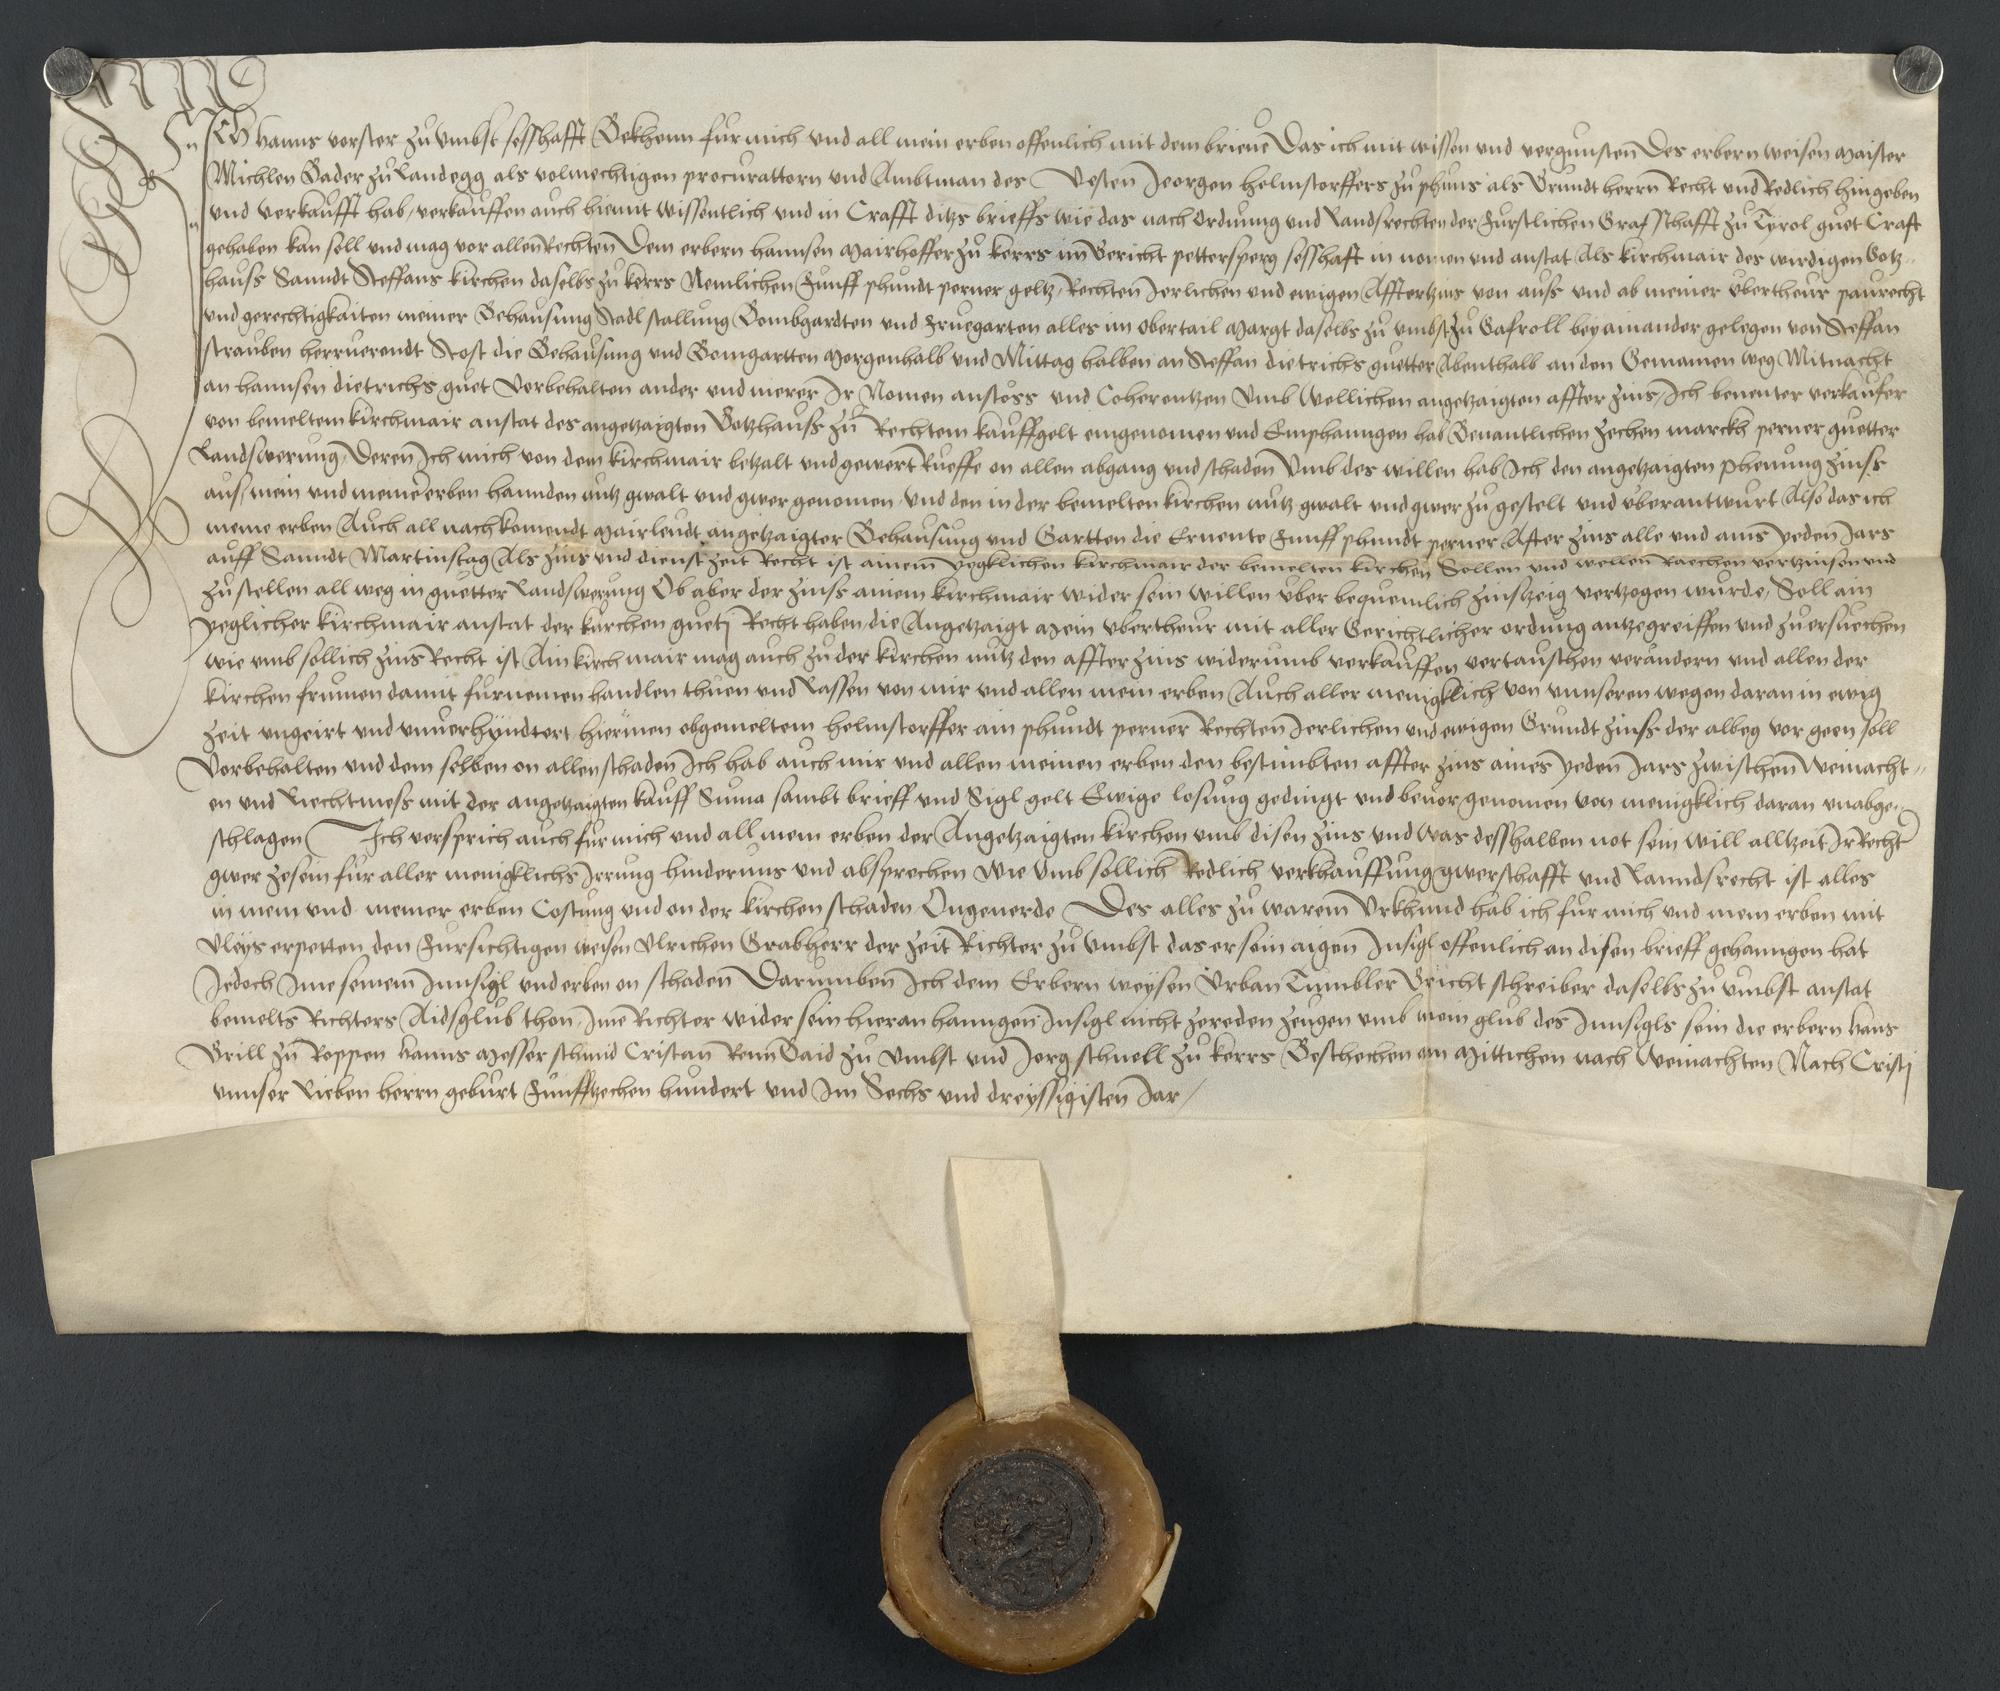 Ich Hanns vorster zu Ymbst sesshafft Bekhenn fur mich und all mein erben offenlich mit dem brieve Das ich mit wissen und vergunsten Des erbern weisen maister
Michlen Bader zu Landegg als volmechtigen procurattorn und Ambtman des Vesten Jeorgen Helmstorffers zu phuns als Grundt herrn Recht und Redlich hingeben
und verkaufft hab, verkauffen auch hiemit wissentlich und in Crafft ditzs brieffs wie das nach ordnung und Landsrechten der Furstlichen Grafschafft zu Tyrol guet Craft
gehaben kan soll und mag vor allen Rechten Dem erbern Hannsen mairhoffer zu kerrs im Gericht pettersperg sesshaft in nomen und anstat Als kirchmair des wirdigen Gotz
hauss Sanndt Steffans kirchen daselbs zu kerrs Nemlichen Funff phundt perner geltz Rechten Jerlichen und ewigen Affterzins von auss und ab meiner ubertheur paurecht
und gerechtigkaiten meiner Behausung Stadl stallung Bombgardten und fruegarten alles im obertail margt daselbs zu ymbst zu Gafroll bey ainander gelegen von Steffan
strauben herruerendt Stost die Behausung und Bomgartten morgenhalb und Mittag halben an Steffan dietrichs guetter Abenthalb an den Gemainen weg Mitnacht
an hannsen dietrichs guet Vorbehalten ander und merer Ir Nomen anstoss und Coherentzen Umb Wellichen angetzaigten affter zins, Ich benenter verkaufer
von bemeltem kirchmair anstat des angetzaigten Gotzhauss zu Rechtem kauffgelt eingenomen und Emphanngen hab Benantlichen Zechen marckh perner guetter
Landswerung, Deren Ich mich von dem kirchmair betzalt und gewert Rueffe on allen abgang und schaden Umb des willen hab Ich den angetzaigten phenung Zinss
aus mein und meiner erben hannden nutz gwalt und gwer genomen und den in der bemelten kirchen nutz gwalt und gwer zu gestelt und uberantwurt Also das ich
meine erben Auch all nachkomendt mairleudt angetzaigter Behausung und Gartten die Ernente Funff phundt perner After zins alle und ains yeden Jars
auff Sanndt Martinstag Als zins und dienst zeit Recht ist ainem yegklichen kirchmair der bemelten kirchen Sollen und wellen Raechen vertzinsen und
zu stellen all weg in guetter Landswerung Ob aber der Zinss ainem kirchmair wider sein willen uber bequemlich Zinsszeit vertzogen wurde, Soll ain
yeglicher kirchmair anstat der kirchen guet Recht haben die Angetzaigt mein ubertheur mit aller Gerichtlicher ordung antzegreiffen und zu ersuechen
wie umb sollich Zins Recht ist Ain kirchmair mag auch zu der kirchen nutz den affter zins widerumb verkauffen vertauschen verandern und allen der
kirchen frumen damit furnemen handlen thuen und Lassen von mir und allen mein erben Auch aller menigklich von unnseren wegen daran in ewig
zeit ungeirt und unverhyndtert hierinen obgemeltem helmstorffer ain phundt perner Rechten Jerlichen und ewigen Grundt Zinss der albeg vor geen soll
Vorbehalten und dem selben on allen schaden Ich hab auch mir und allen meinen erben den bestimbten affter Zins aines yeden Jars Zwischen Weinacht
en und Liechtmess mit der angetzaigten kauff Suma sambt brieff und Sigl gelt Ewige losung gedingt und bevor genomen von menigklich daran unabge
schlagen Ich versprich auch fur mich und all mein erben der Angetzaigten kirchen umb disen Zins und Was desshalben not sein will alltzeit Ir Recht
gwer ze sein fur aller menigklichs Irrung hinderung und absprechen Wie Umb sollich Redlich verkhauffung gwerschafft und Lanndsrecht ist alles
in mein und meiner erben Costung und on der kirchen schaden Ongeverde Des alles zu warem Urkhund hab ich fur mich und mein erben mit
Vleys erpetten den Fursichtigen weisen Ulrichen Grabherr der zeit Richter zu Ymbst das er sein aigen Insigl offenlich an disen brieff gehanngen hat
Jedoch Ime seinem Innsigl und erben on schaden Darumben Ich dem Erbern weysen Urban Tumbler Gricht schreiber daselbs zu Umbst anstat
bemelts Richters Aidsglub thon Ime Richter wider sein hieran hanngen Insigl nicht zereden Zeugen umb mein glub des Innsigls sein die erbern Hans
Grill zu Roppen Hanns messerschmid Cristan zu Umbst und Jerg schnell zu kerrs Beschechen am Mittichen nach Weinachten Nach Cristi
unnser Lieben herrn geburt Funfftzechen hundert und Im Sechs und dreyssigisten Jar